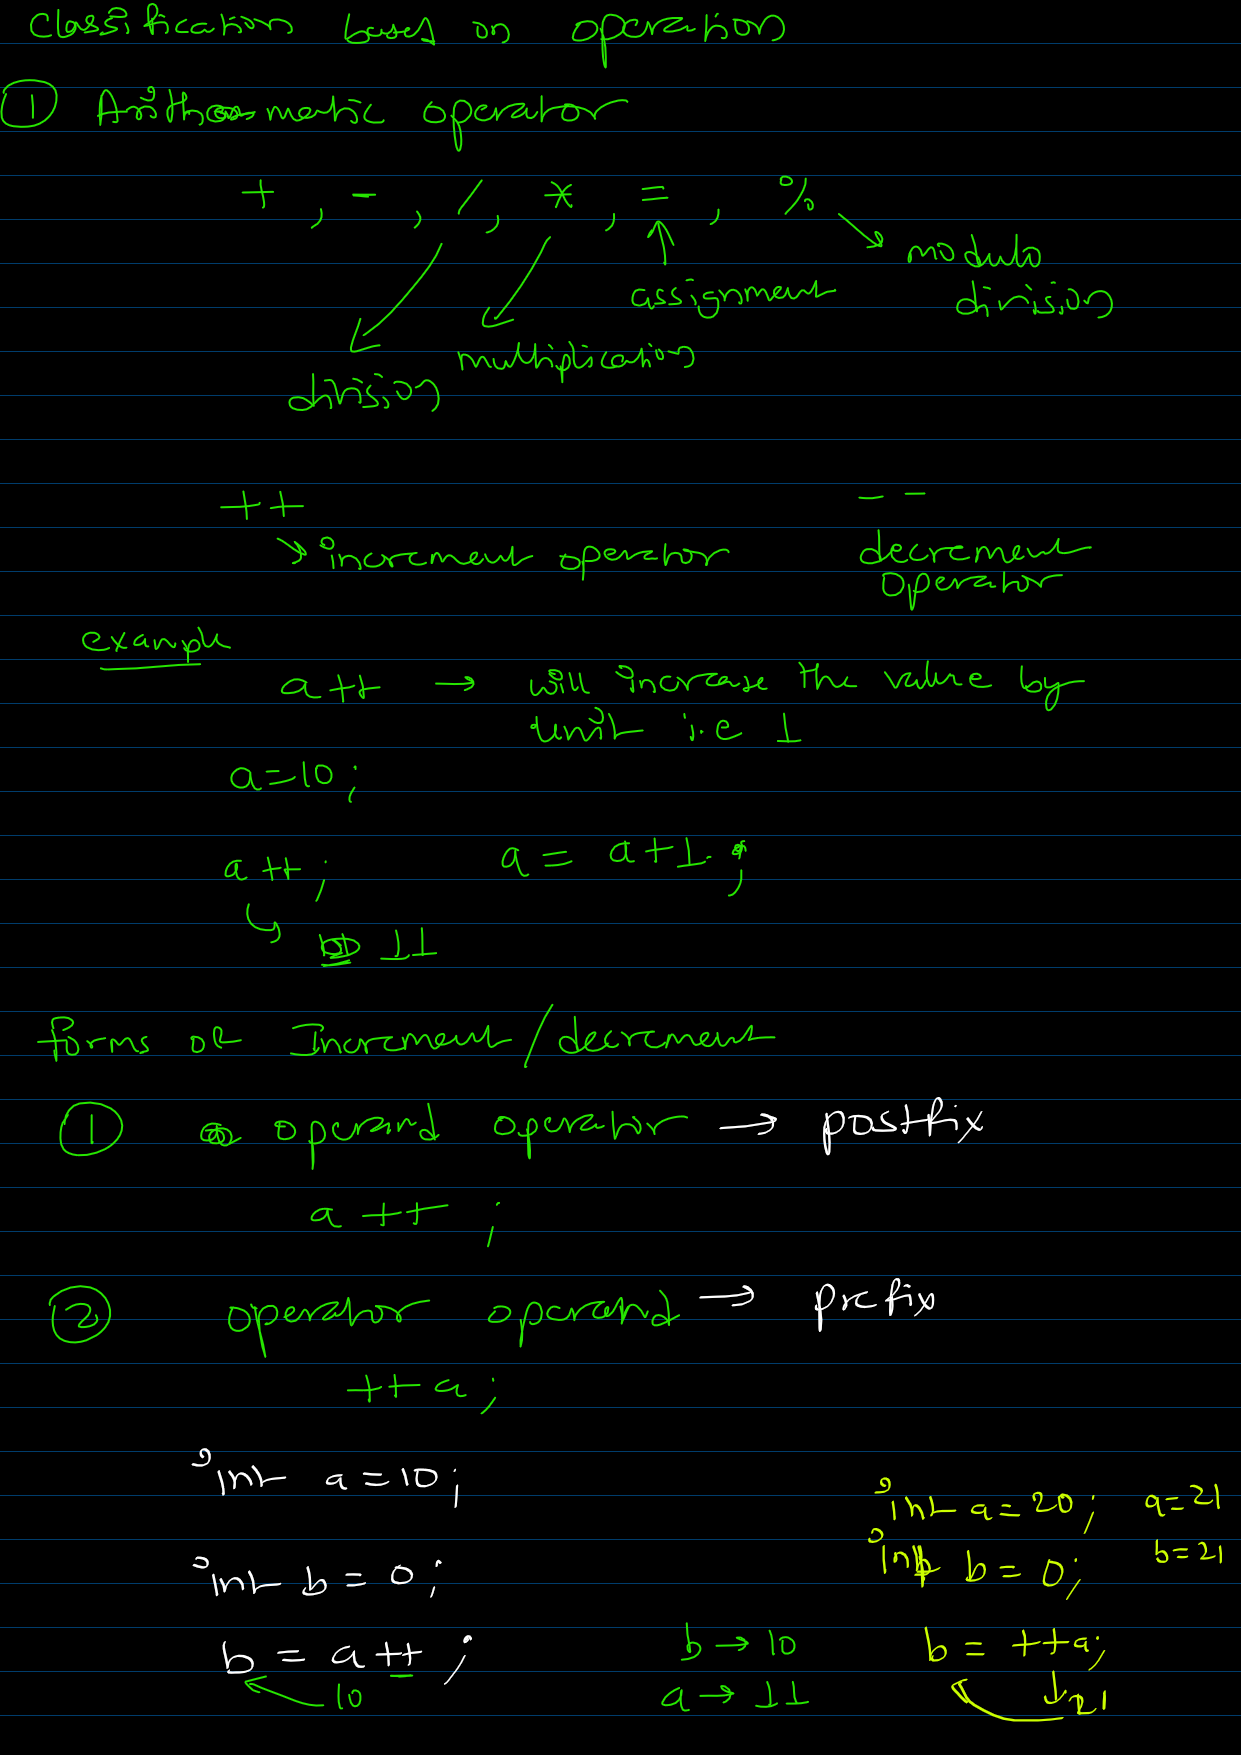 Classification based on operation
① Arithmetic operator
+ , - , / , * , = , %
modulo division
assignment
multiplication
division
++ --
increment operator decrement operator
example
a++ → will increase the value by
unit i.e 1
a=10;
a++; a = a+1;
11
forms of Increment/decrement
① operand operator → postfix
a++ ;
② operator operand → prefix
++a;
int a=10;
int b = 0;
b = a++ ;
10
b → 10
a → 11
int a = 20; a=21
int b = 0; b=21
b = ++a;
21